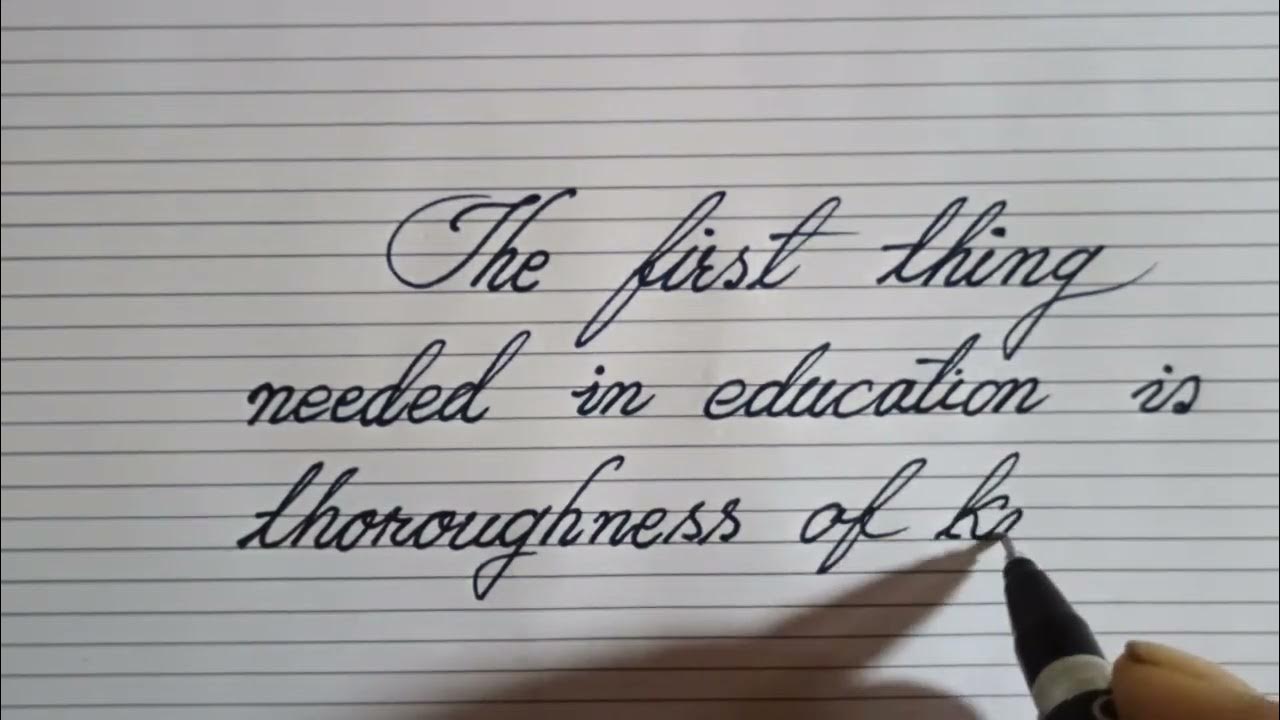 The first thing
needed in education is
thoroughness of k